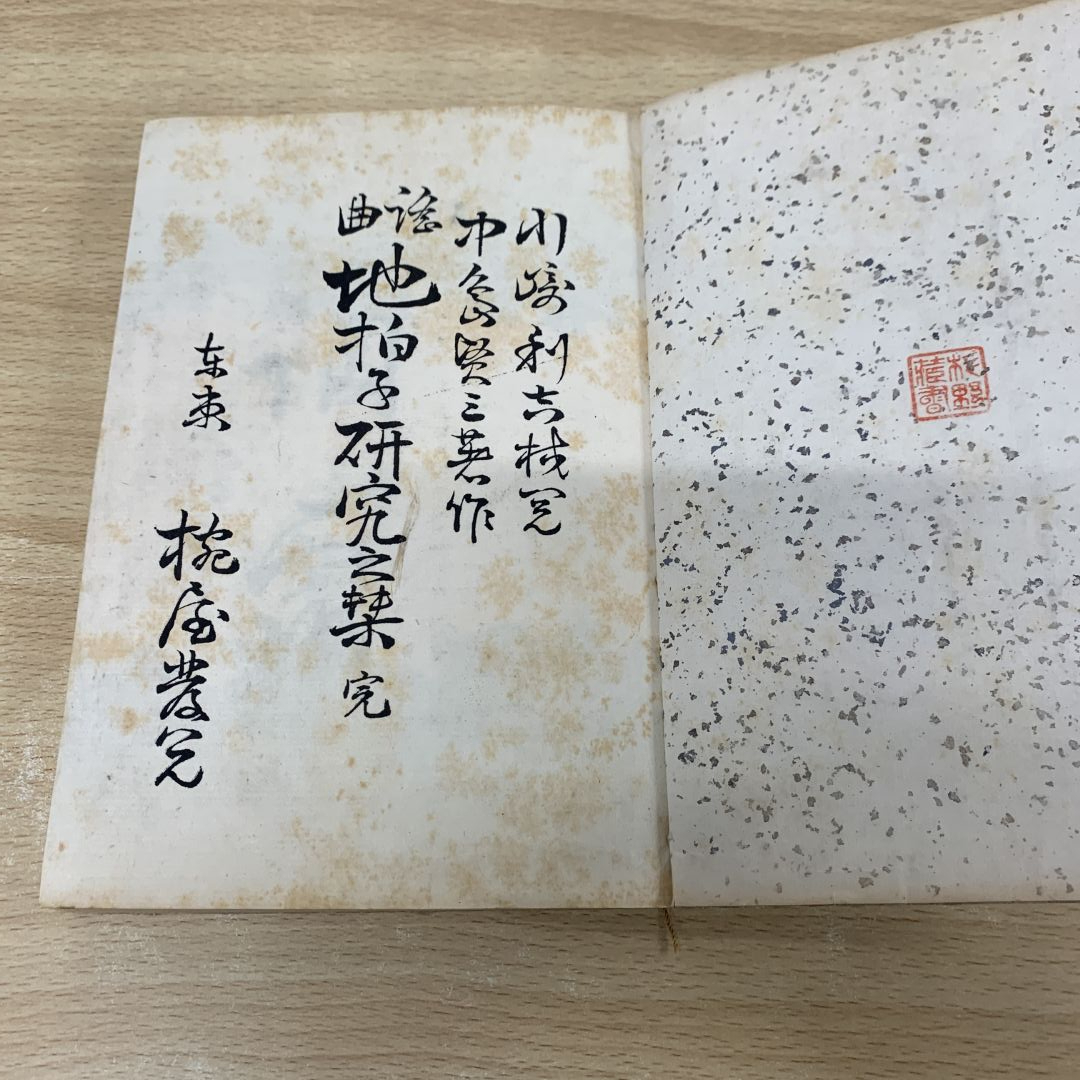 野
藏書
川崎利吉校閲
中島賢三著作
謠曲地拍子研究之栞 完
東京 椀屋發兌